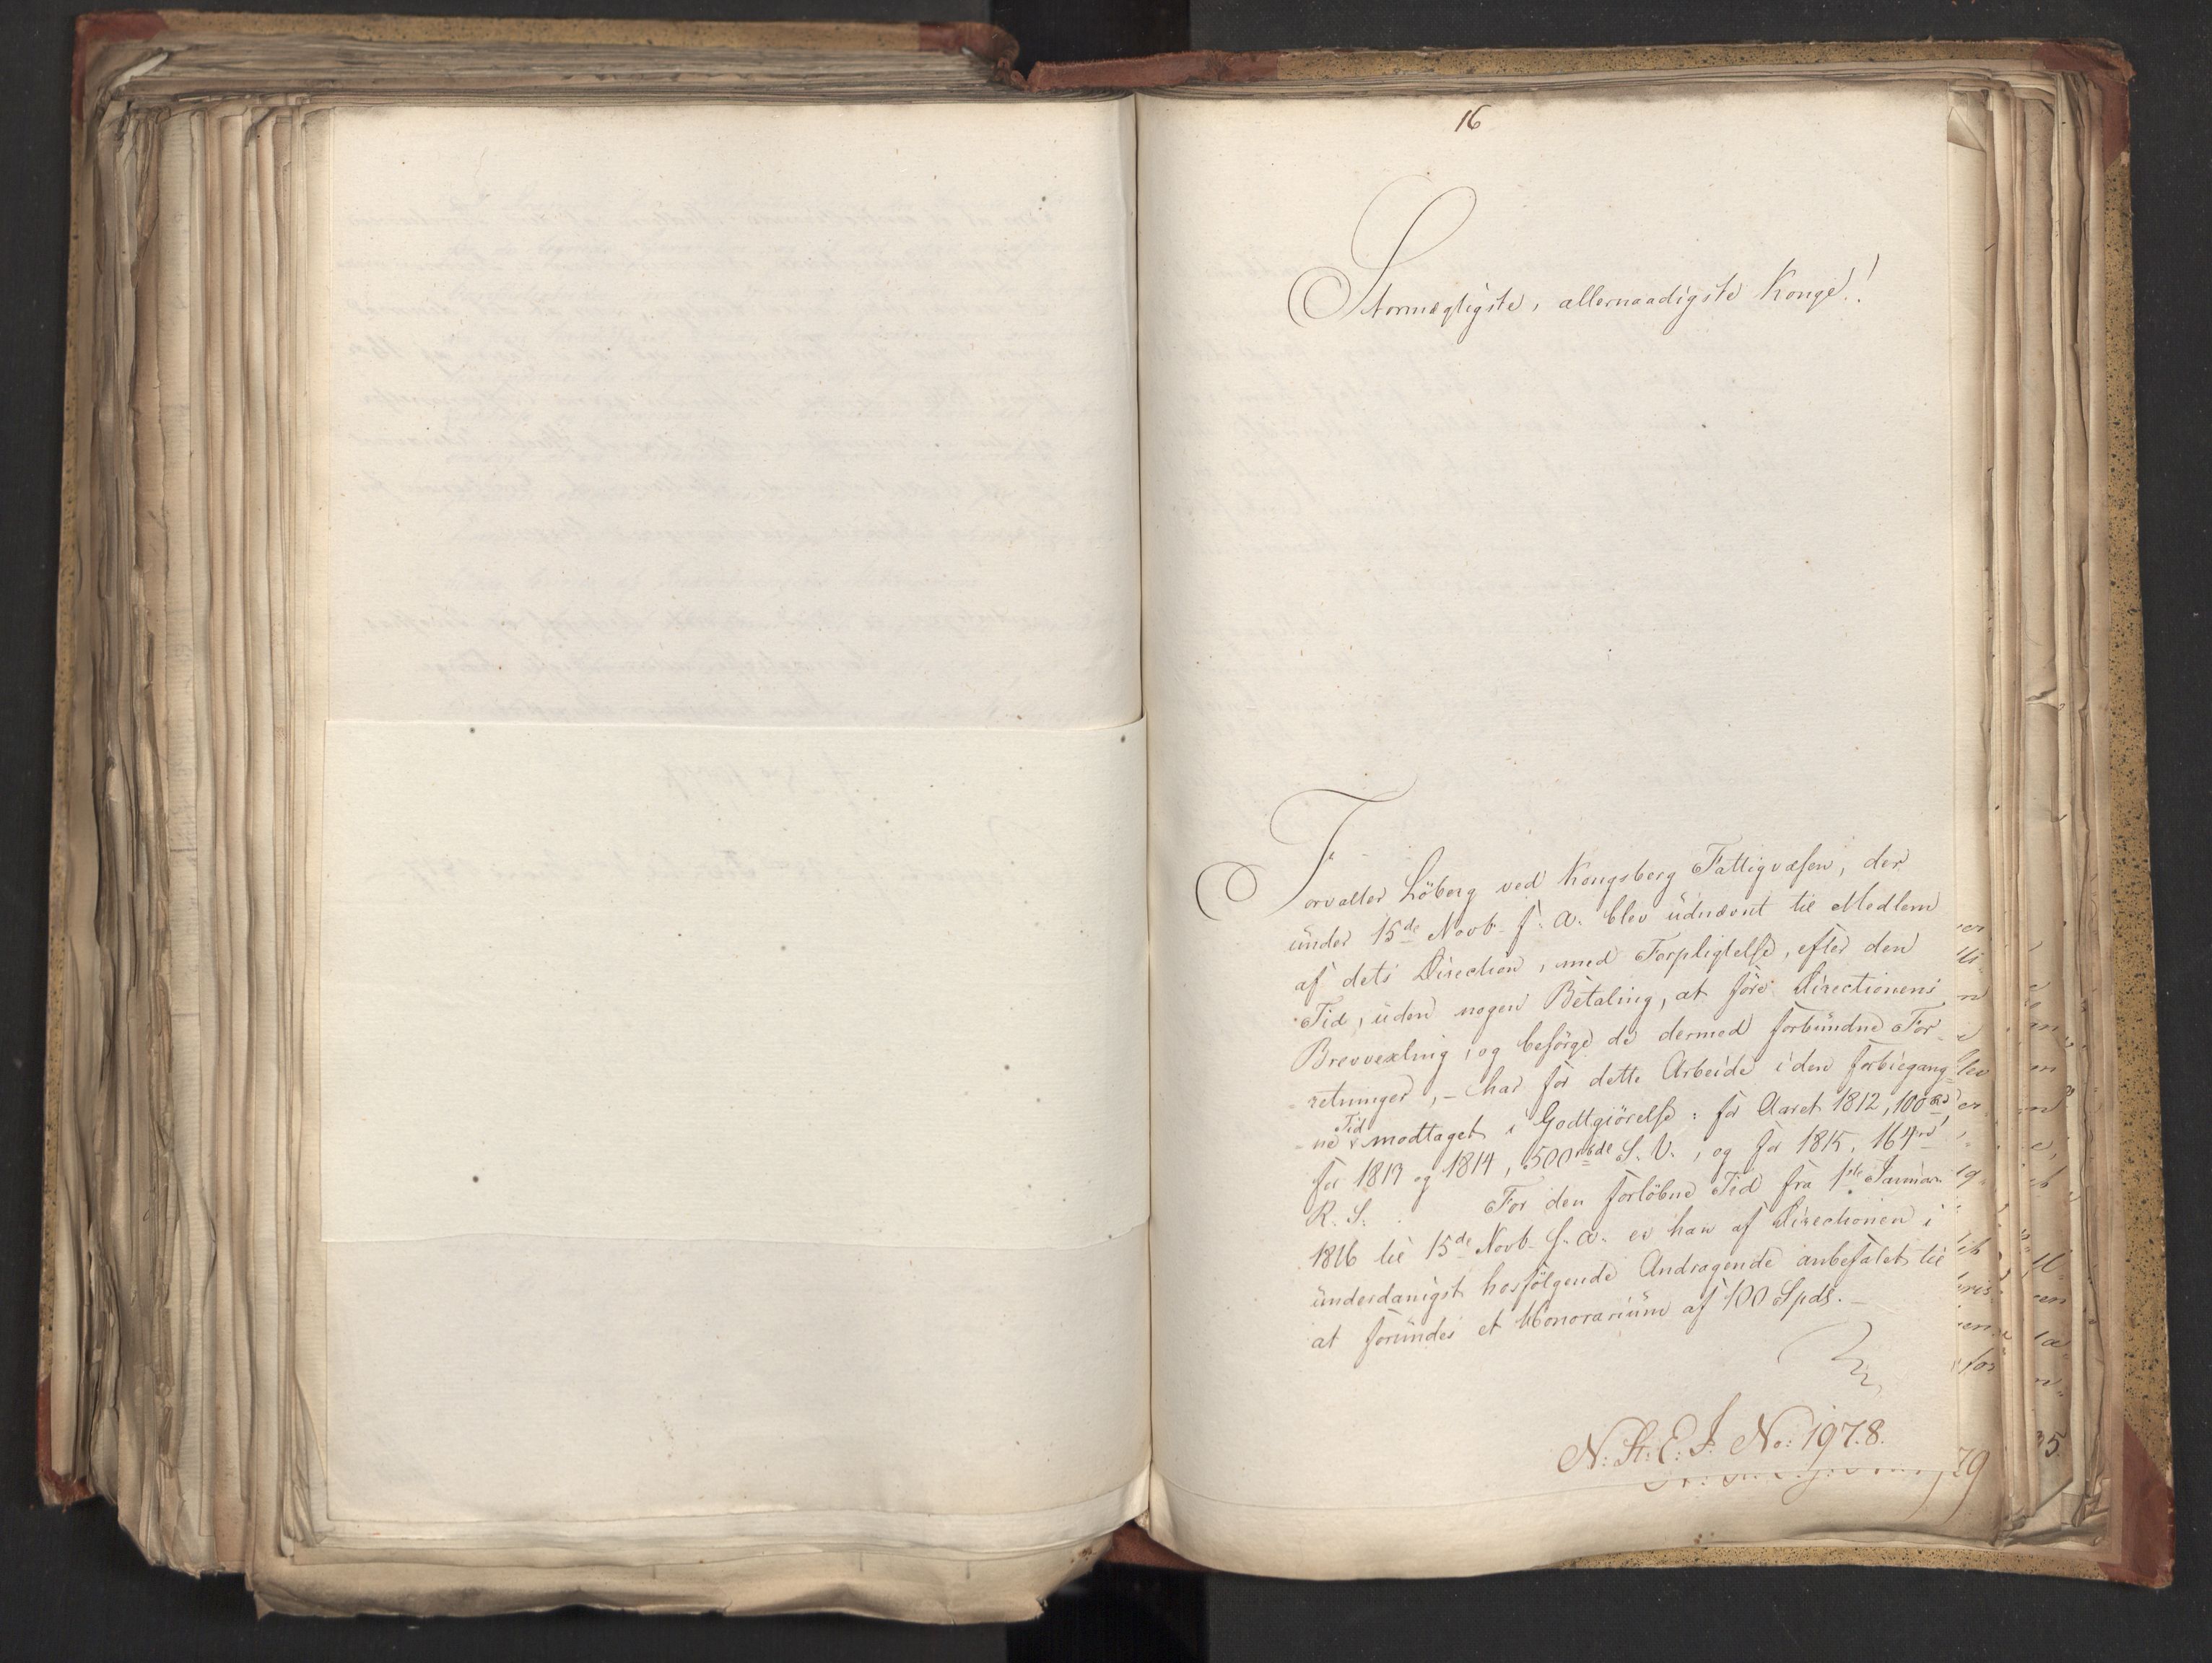 16
Stormægtigste, allernaadigste Konge!
Forvalter Löberg ved Kongsberg Fattigvæsen, der
under 15de Novb. f. a. blev udnævnt til Medlem
af dets Direction, med Forpligtelse, efter den
Tid, uden nogen Betaling, at före Directionens
Brevvexling, og besörge de dermed forbundne For-
retninger, – har for dette Arbeide i den forbiegang-
ne Tid modtaget i Godtgiörelse: for Aaret 1812, 100 Rd,
for 1813 og 1814, 500 rbdr S. V., og for 1815, 164 rd
R. S. For den forlöbne Tid fra 1ste Januar
1816 til 15de Novb. f. a. er han af Directionen i
underdanigst hosfölgende Andragende anbefalet til
at forundes et Honorarium af 100 Spds. –
N: St: E. J. No: 1978.
79
35